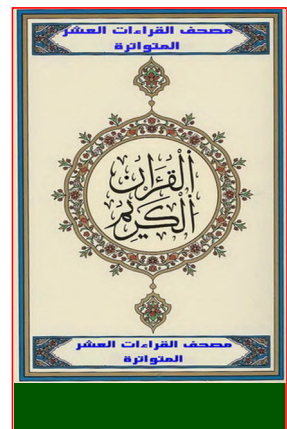 مصحف القراءات العشر
المتواترة
القرآن
الكريم
مصحف القراءات العشر
المتواترة